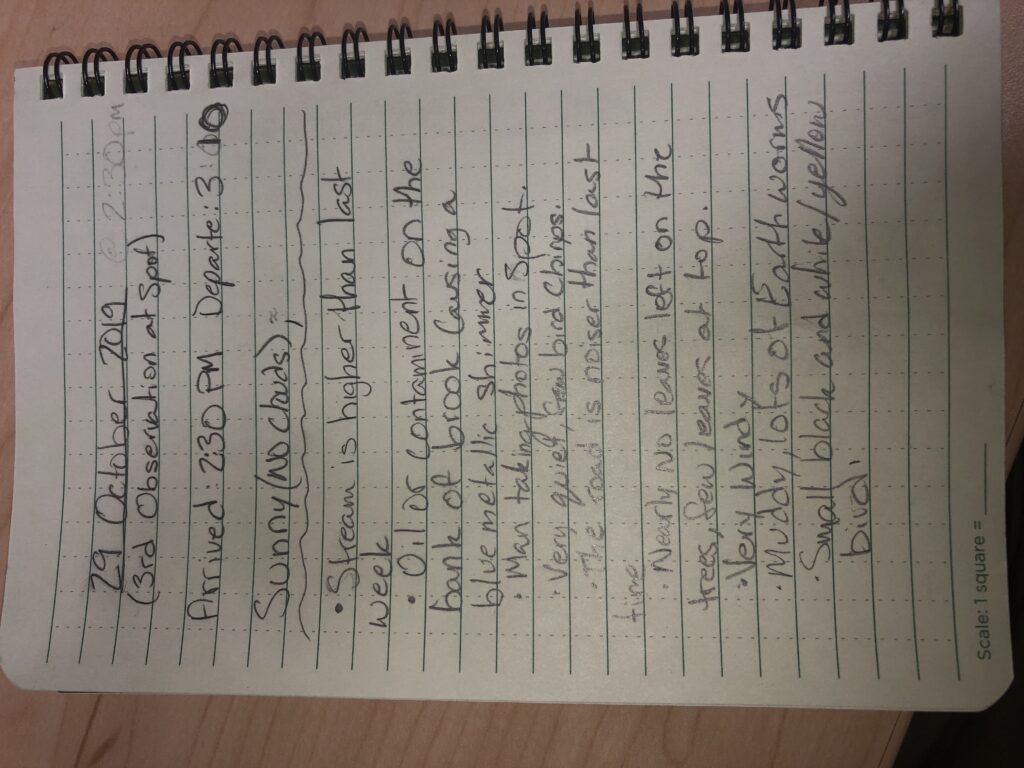 29 October 2019 @ 2:30pm
(3rd Observation at Spot)
Arrived: 2:30 PM Departe: 3:10
Sunny (No clouds),
• Stream is higher than last
week
• Oil or contaminent on the
bank of brook causing a
blue metalic shimmer
• Man taking photos in Spot.
• Very quiet, few bird chirps.
• The road is noiser than last
time
• Nearly no leaves left on the
trees, few leaves at top.
• Very Windy
• Muddy, lots of Earth worms
• Small black and white/yellow
bird.
Scale: 1 square =